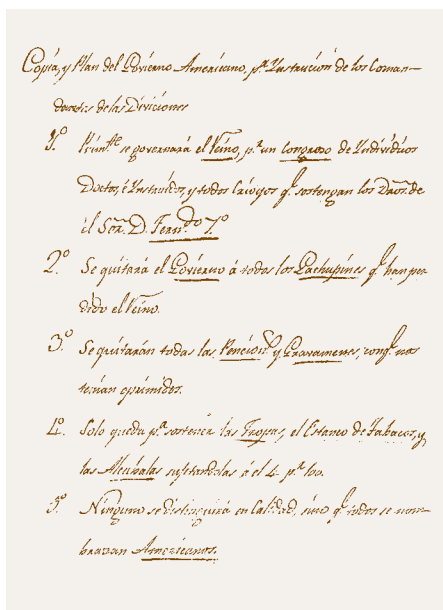 Copia, y Plan del Govierno Americano, pª. Ynstrución de los Coman-
dantes de las Diviciones
1º. Primte. se governará el Reino, pr. un Congreso de Yndividuos
Doctos, é Ynstruidos, y todos Crioyos qe. sostengan los Dros. de
el Sor. D. Ferndo. 7º
2º. Se quitará el Govierno á todos los Gachupines qe. han per
dido el Reino.
3º. Se quitarán todas las Penciones. y Gravamenes, conqe. nos
tenian oprimidos.
4º. Solo queda pª. sostener las Tropas, el Estanco de Tabacos, y
las Alcabalas sujetandolas á el 4 pr. 100.
5º. Ninguno se distinguirá en Calidad, sino qe. todos se nom-
braran Americanos.